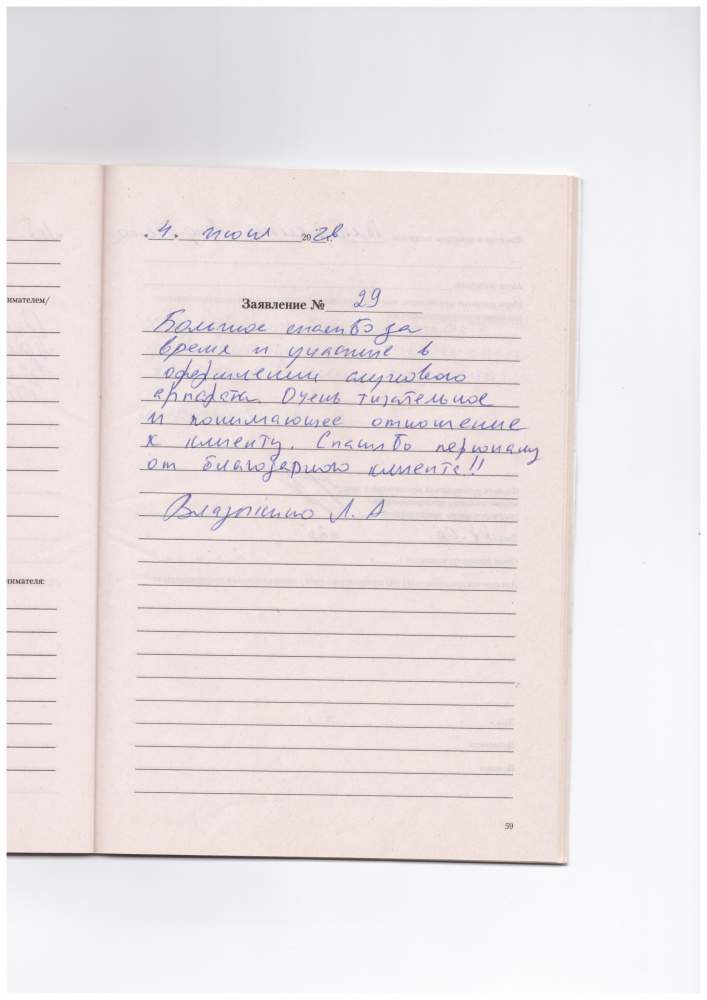 4. июля 20
имателем/
Заявление № 29
Большое спасибо за
время и участие в
оформлении слухового
аппарата. Очень тщательное
и понимающее отношение
к клиенту. Спасибо персоналу
от благодарного клиента!!
Л. А
нимателя:
59